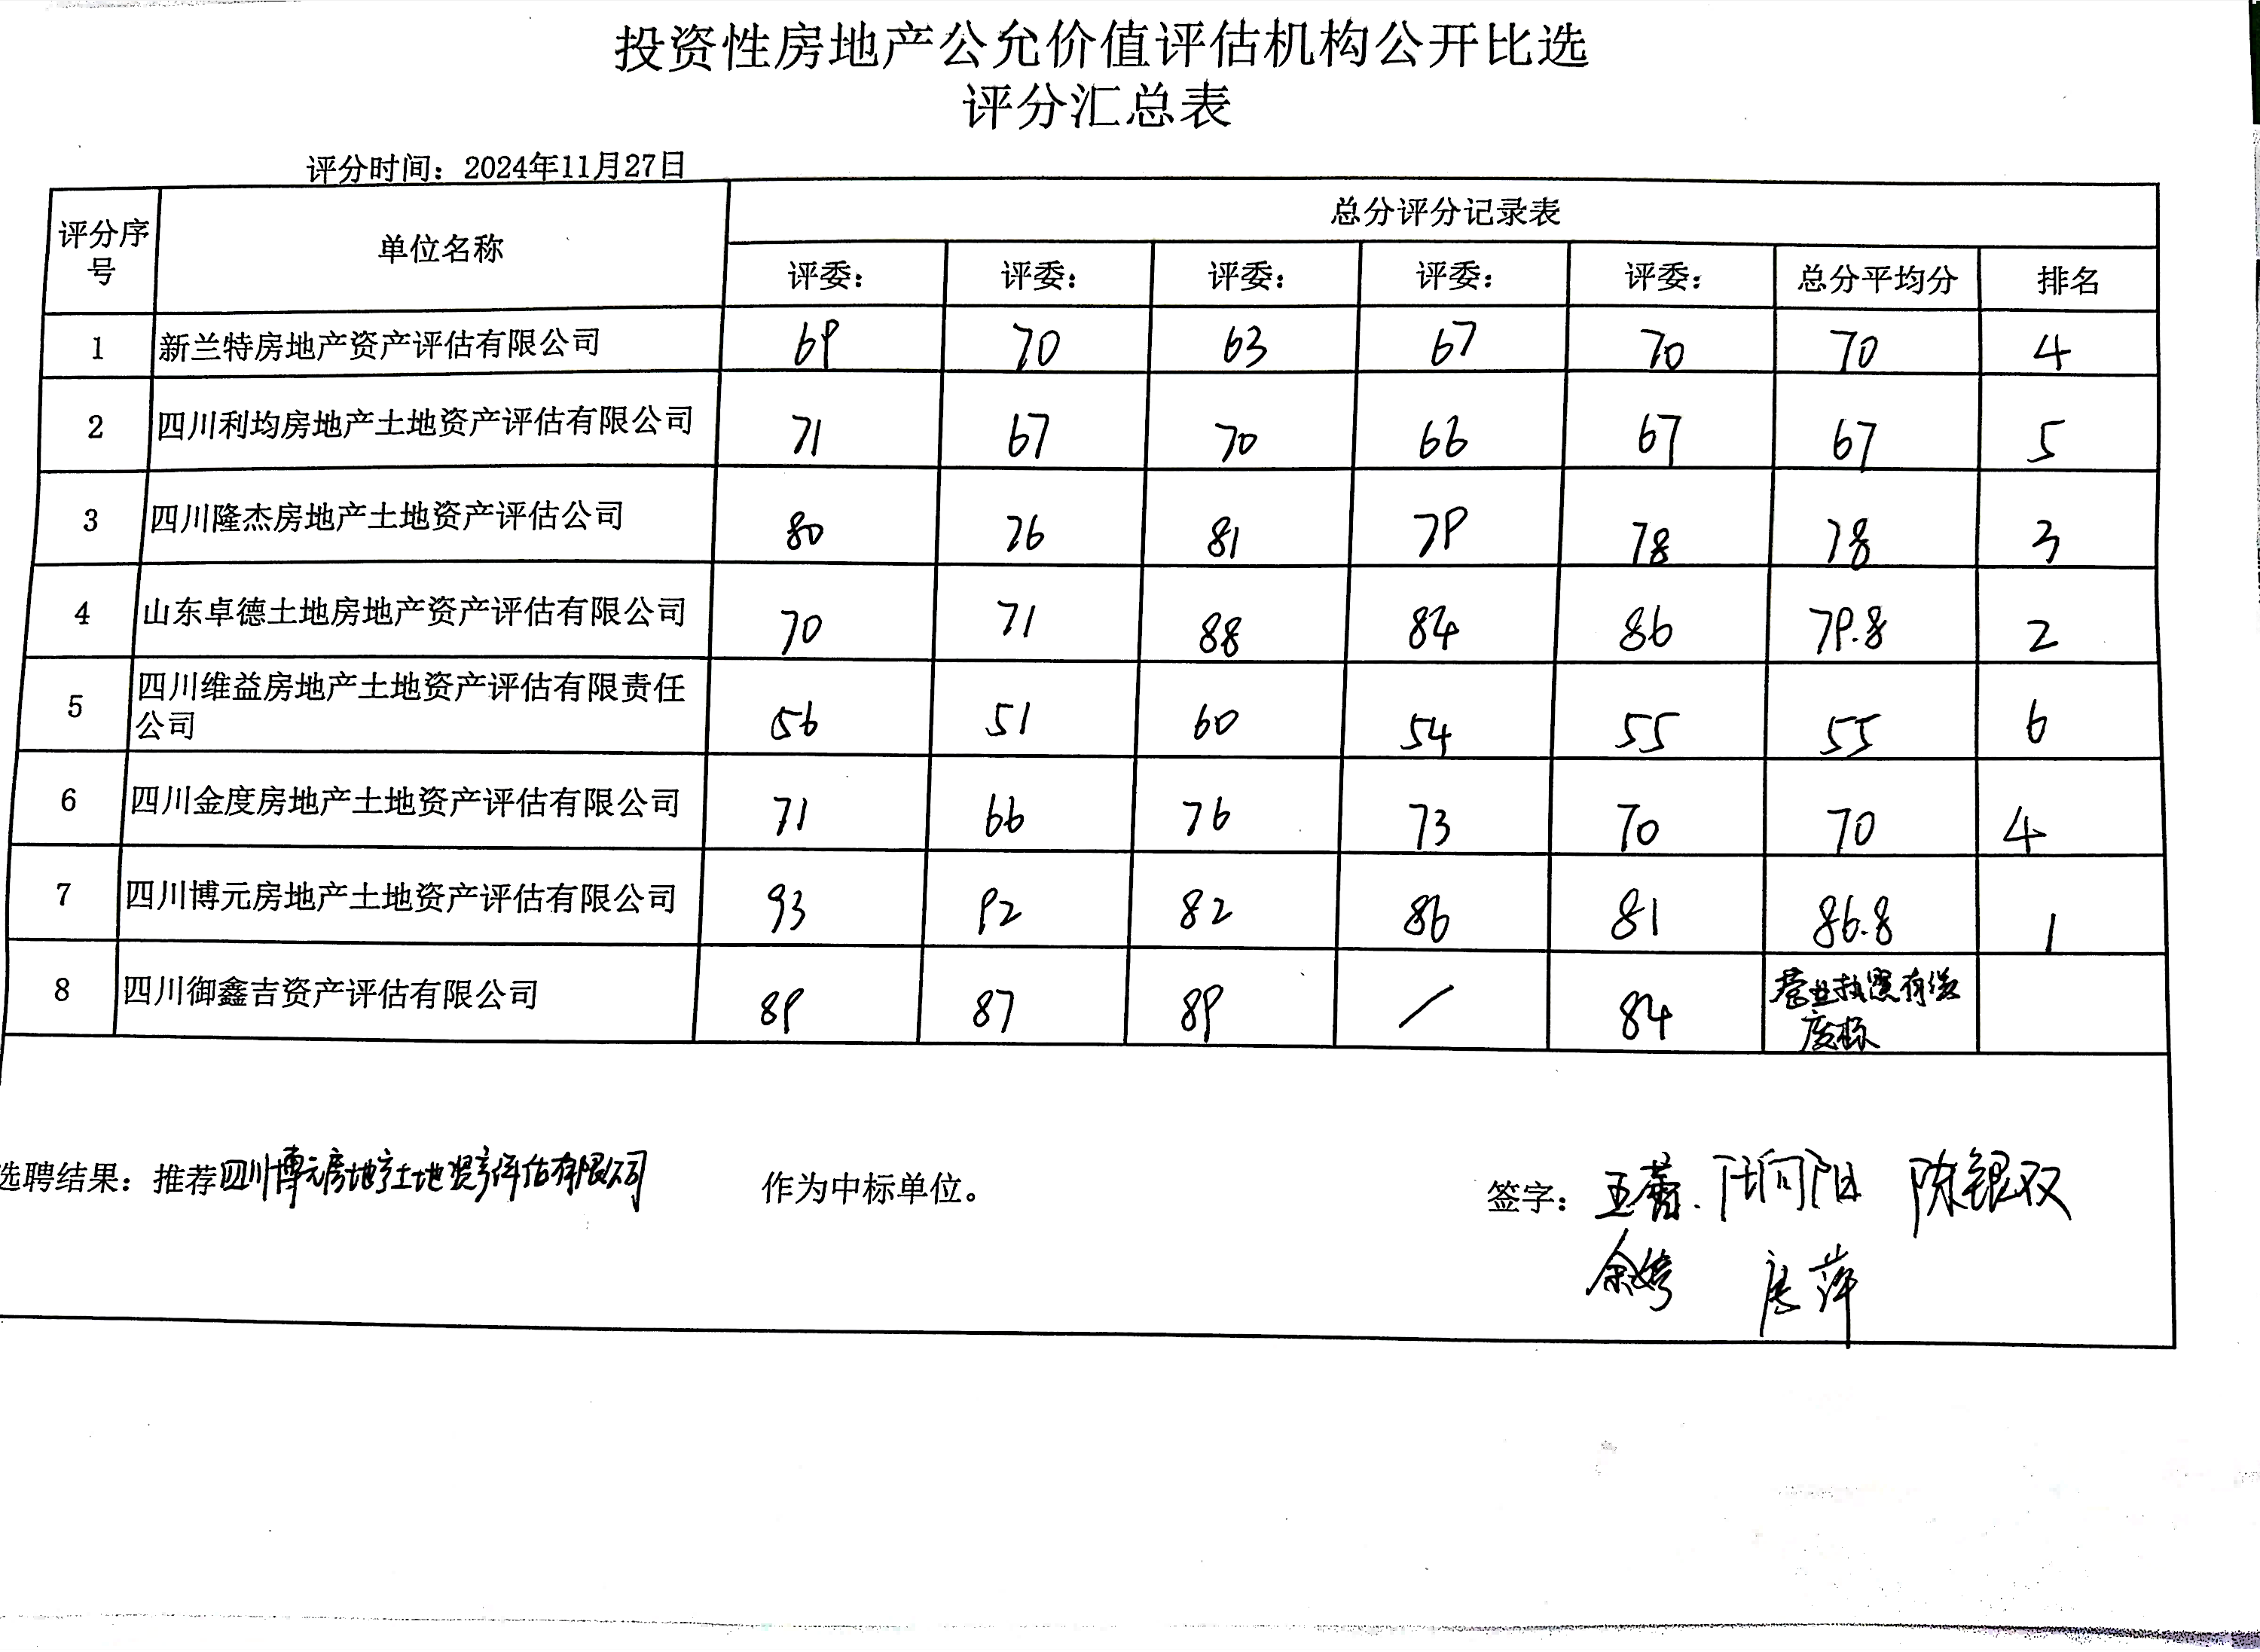 投资性房地产公允价值评估机构公开比选
评分汇总表
评分时间：2024年11月27日
评分序号 单位名称 总分评分记录表
评委： 评委： 评委： 评委： 评委： 总分平均分 排名
1 新兰特房地产资产评估有限公司 69 70 63 67 70 70 4
2 四川利均房地产土地资产评估有限公司 71 67 70 66 67 67 5
3 四川隆杰房地产土地资产评估公司 80 76 81 79 78 78 3
4 山东卓德土地房地产资产评估有限公司 70 71 88 84 86 79.8 2
5 四川维益房地产土地资产评估有限责任公司 56 51 60 54 55 55 6
6 四川金度房地产土地资产评估有限公司 71 66 76 73 70 70 4
7 四川博元房地产土地资产评估有限公司 93 92 82 86 81 86.8 1
8 四川御鑫吉资产评估有限公司 89 87 89 / 84 营业执照 废标
选聘结果：推荐四川博元房地产土地资产评估有限公司 作为中标单位。
签字： 王蕾. 陈银双
余婷